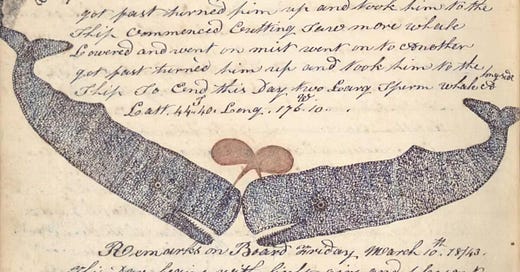 got fast turned him up and took him to the
Ship Commenced Cutting Saw more whale
Lowered and went on mist went on to another
got fast turned him up and took him to the
Ship So End this Day two Larg Sperm whale
Latt. 44.40. Long. 176.10
Remarks on Board Friday March 10th 1843
This Day begins with light airs and pleasant